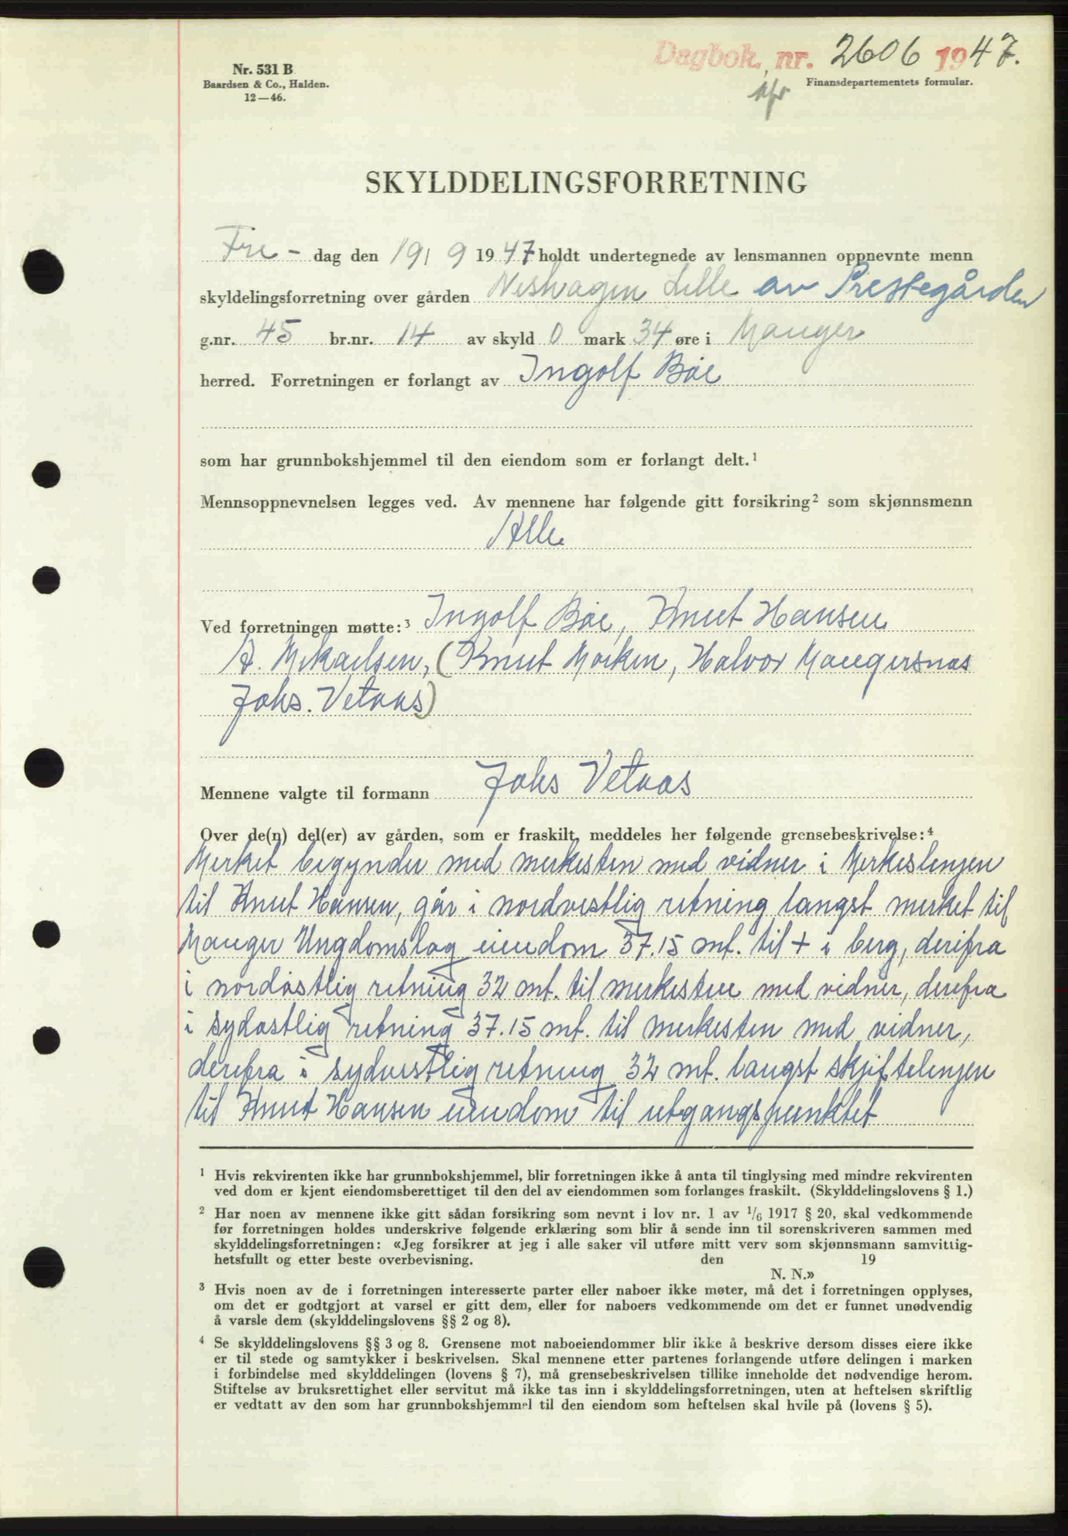 Dagbok. nr. 2606 1947.
Nr. 531 B
Baardsen & Co., Halden.
12—46.
Finansdepartementets formular.
SKYLDDELINGSFORRETNING
Fre- dag den 19/ 9 1947 holdt undertegnede av lensmannen oppnevnte menn
skyldelingsforretning over gården Neshagen Lille av Prestegården
g.nr. 45 br.nr. 14 av skyld 0 mark 34 øre i Manger
herred. Forretningen er forlangt av Ingolf Bøe
som har grunnbokshjemmel til den eiendom som er forlangt delt.¹
Mennsoppnevnelsen legges ved. Av mennene har følgende gitt forsikring² som skjønnsmenn
Alle
Ved forretningen møtte:³ Ingolf Bøe, Knut Hansen
A. Mikaelsen, (Knut Moken, Halvor Mangersnes
Johs. Vetaas)
Mennene valgte til formann Johs Vetaas
Over de(n) del(er) av gården, som er fraskilt, meddeles her følgende grensebeskrivelse:⁴
Merket begynder med merkesten med vidner i Merkeslinjen
til Knut Hansen, går i nordvestlig retning langst merket til
Manger Ungdomslag eiendom 37.15 mt. til + i berg, derifra
i nordøstlig retning 32 mt. til merkesten med vidner, derefra
i sydøstlig retning 37.15 mt. til merkesten med vidner,
derefra i sydvestlig retning 32 mt. langst skiftelinjen
til Knut Hansen eiendom til utgangspunktet
¹ Hvis rekvirenten ikke har grunnbokshjemmel, blir forretningen ikke å anta til tinglysing med mindre rekvirenten
ved dom er kjent eiendomsberettiget til den del av eiendommen som forlanges fraskilt. (Skylddelingslovens § 1.)
² Har noen av mennene ikke gitt sådan forsikring som nevnt i lov nr. 1 av 1/6 1917 § 20, skal vedkommende
før forretningen holdes underskrive følgende erklæring som blir å sende inn til sorenskriveren sammen med
skylddelingsforretningen: «Jeg forsikrer at jeg i alle saker vil utføre mitt verv som skjønnsmann samvittig-
hetsfullt og etter beste overbevisning. den 19
N. N.»
³ Hvis noen av de i forretningen interesserte parter eller naboer ikke møter, må det i forretningen opplyses,
om det er godtgjort at varsel er gitt dem, eller for naboers vedkommende om det er funnet unødvendig
å varsle dem (skylddelingslovens §§ 2 og 8).
⁴ Se skylddelingslovens §§ 3 og 8. Grensene mot naboeiendommer blir ikke å beskrive dersom disses eiere ikke
er til stede og samtykker i beskrivelsen. Skal mennene etter partenes forlangende utføre delingen i marken
i forbindelse med skylddelingen (lovens § 7), må grensebeskrivelsen tillike inneholde det nødvendige herom.
Stiftelse av bruksrettighet eller servitut må ikke tas inn i skylddelingsforretningen, uten at heftelsen skriftlig
er vedtatt av den som har grunnbokshjemmel til den eiendom som heftelsen skal hvile på (lovens § 5).